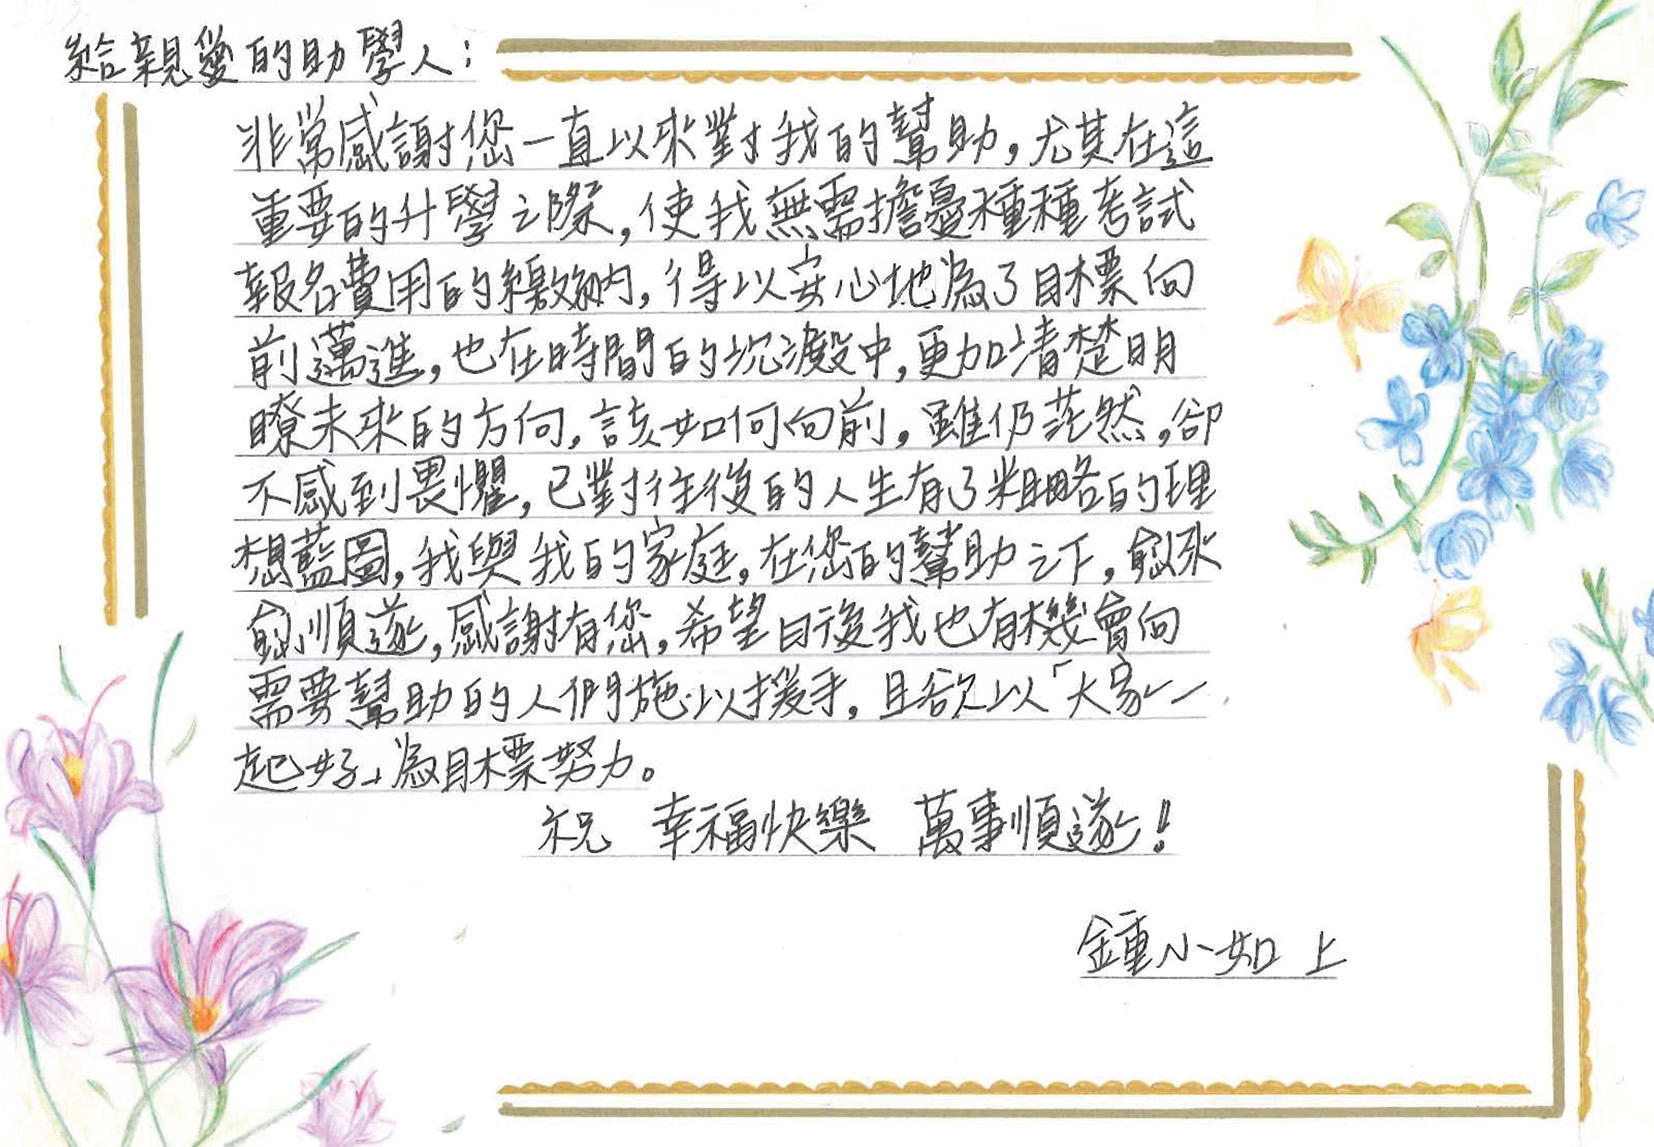 給親愛的助學人：
非常感謝您一直以來對我的幫助，尤其在這
重要的升學之際，使我無需擔憂種種考試
報名費用的繳納，得以安心地為了目標向
前邁進，也在時間的沉澱中，更加清楚明
瞭未來的方向，該如何向前，雖仍茫然，卻
不感到畏懼，已對往後的人生有了粗略的理
想藍圖，我與我的家庭，在您的幫助之下，愈來
愈順遂，感謝有您，希望日後我也有機會向
需要幫助的人們施以援手，且欲以「大家一
起好」為目標努力。
祝 幸福快樂 萬事順遂！
鍾小如 上